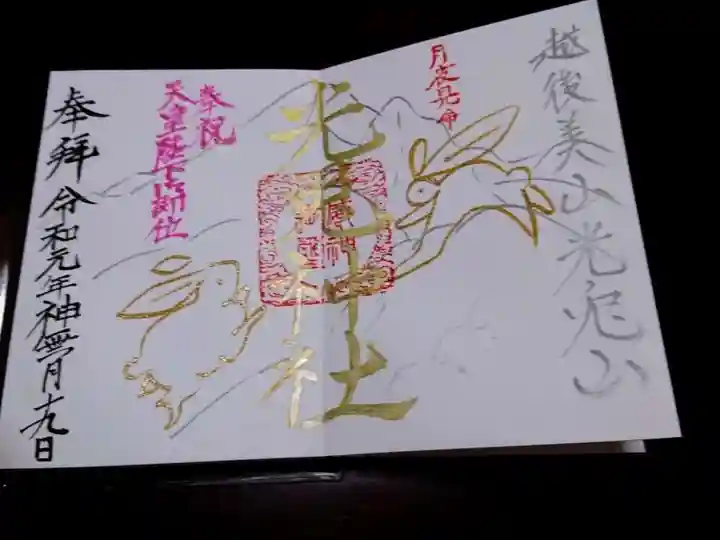 越後美山光兎山
月夜見命
光兎神社
奉祝
天皇陛下御即位
奉拝
令和元年神無月十九日